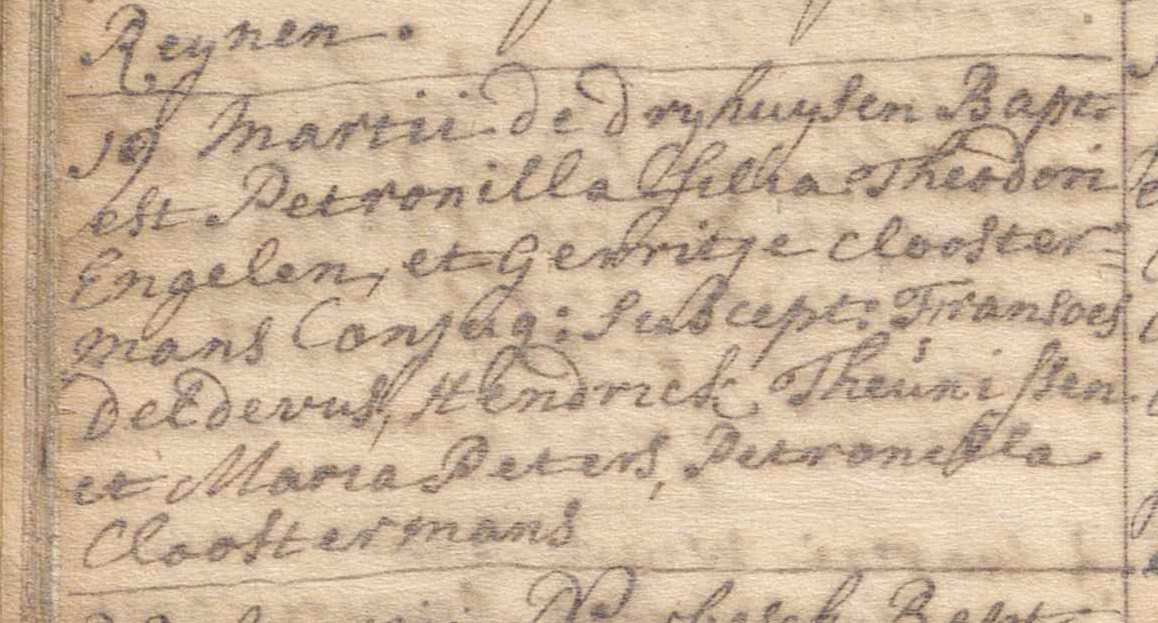 Reynen.
19 Martii de Dryhuysen Bapt:
est Petronilla filia Theodori
Engelen, et Gerritje clooster=
mans Conjug: Suscept: Fransoes
Hendrick Theunissen
et Maria Peters, Petronella
Cloostermans
Bapt